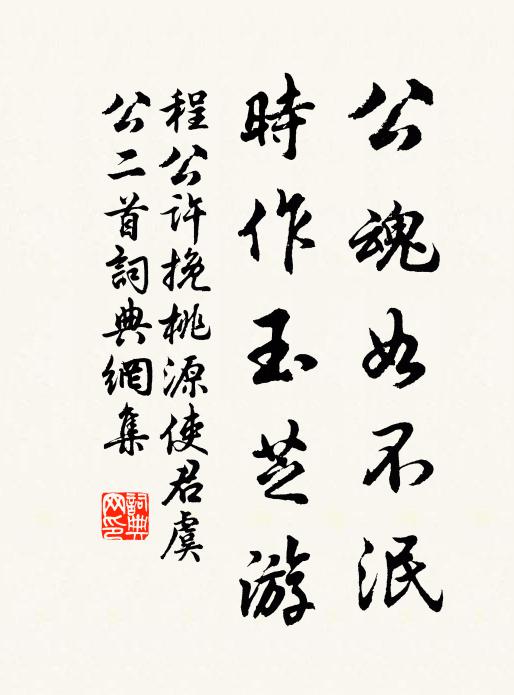 公魂如不泯
時作玉芝游
程公許挽桃源使君虞
公二首詞典網集
詞典
网印